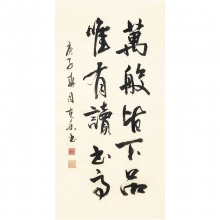 萬般皆下品
惟有讀書高
庚子